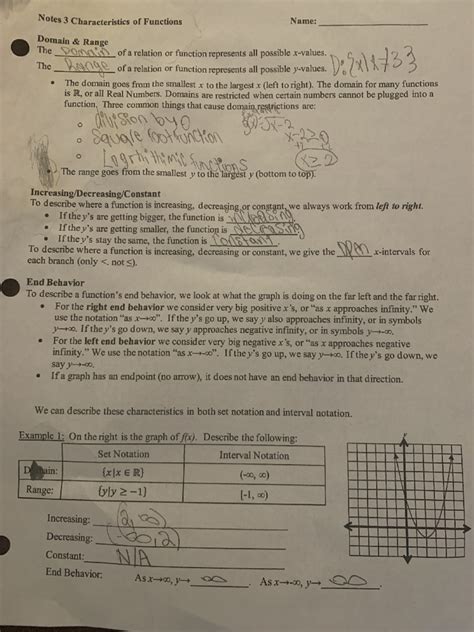 Notes 3 Characteristics of Functions Name:
Domain & Range
The Domain of a relation or function represents all possible x-values.
The Range of a relation or function represents all possible y-values. D:{x|x≠3}
• The domain goes from the smallest x to the largest x (left to right). The domain for many functions
is ℝ, or all Real Numbers. Domains are restricted when certain numbers cannot be plugged into a
function. Three common things that cause domain restrictions are:
○ division by 0
○ Square root function
x-2≥0
○ Logrhithimic functions
x≥2
• The range goes from the smallest y to the largest y (bottom to top).
Increasing/Decreasing/Constant
To describe where a function is increasing, decreasing or constant, we always work from left to right.
• If the y's are getting bigger, the function is increasing.
• If the y's are getting smaller, the function is decreasing.
• If the y's stay the same, the function is constant.
To describe where a function is increasing, decreasing or constant, we give the open x-intervals for
each branch (only <. not ≤).
End Behavior
To describe a function's end behavior, we look at what the graph is doing on the far left and the far right.
• For the right end behavior we consider very big positive x's, or "as x approaches infinity." We
use the notation "as x→∞". If the y's go up, we say y also approaches infinity, or in symbols
y→∞. If the y's go down, we say y approaches negative infinity, or in symbols y→-∞.
• For the left end behavior we consider very big negative x's, or "as x approaches negative
infinity." We use the notation "as x→-∞". If the y's go up, we say y→∞. If the y's go down, we
say y→-∞.
• If a graph has an endpoint (no arrow), it does not have an end behavior in that direction.
We can describe these characteristics in both set notation and interval notation.
Example 1: On the right is the graph of f(x). Describe the following:
Set Notation Interval Notation
Domain: {x|x ∈ ℝ} (-∞, ∞)
Range: {y|y ≥ -1} [-1, ∞)
Increasing: (2, ∞)
Decreasing: ∞, 2)
Constant: N/A
End Behavior: As x→∞, y→ ∞. As x→-∞, y→ ∞.